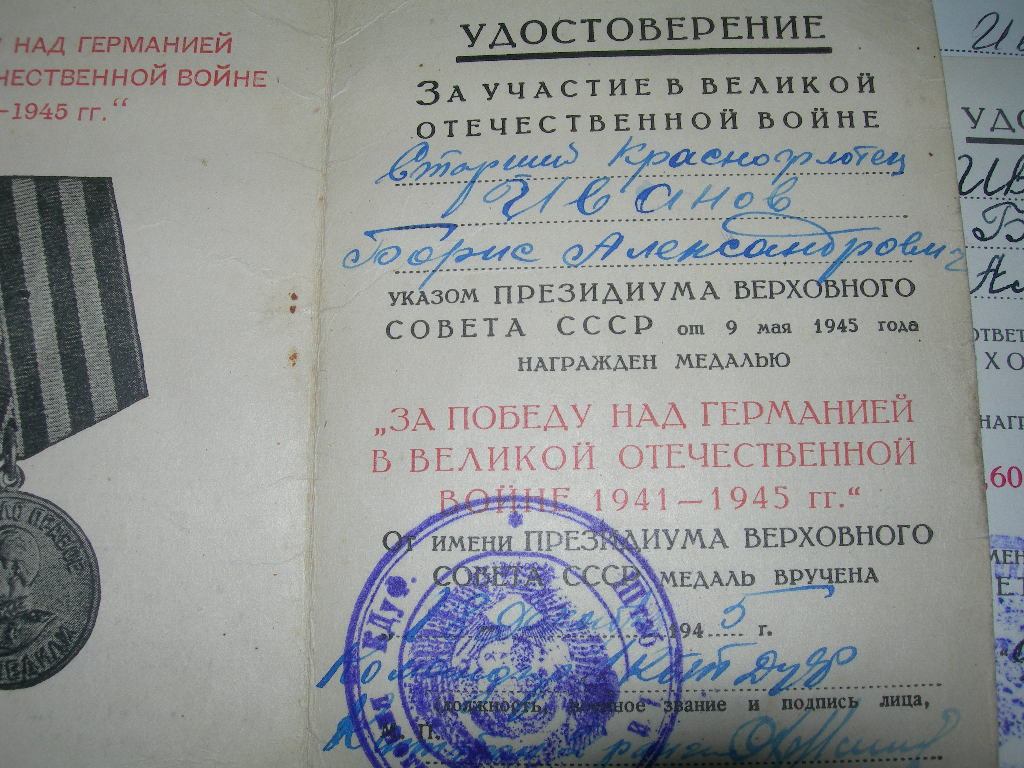 У НАД ГЕРМАНИЕЙ
ЧЕСТВЕННОЙ ВОЙНЕ
—1945 гг.“
УДОСТОВЕРЕНИЕ
ЗА УЧАСТИЕ В ВЕЛИКОЙ
ОТЕЧЕСТВЕННОЙ ВОЙНЕ
Старший Краснофлотец
Иванов
Борис Александрович
УКАЗОМ ПРЕЗИДИУМА ВЕРХОВНОГО
СОВЕТА СССР от 9 мая 1945 года
НАГРАЖДЕН МЕДАЛЬЮ
„ЗА ПОБЕДУ НАД ГЕРМАНИЕЙ
В ВЕЛИКОЙ ОТЕЧЕСТВЕННОЙ
ВОЙНЕ 1941—1945 гг.“
От имени ПРЕЗИДИУМА ВЕРХОВНОГО
СОВЕТА СССР МЕДАЛЬ ВРУЧЕНА
194 5 г.
должность, военное звание и подпись лица,
М. П.
ранга
УДО
ИВ
Б
Ал
ОТВЕТ
ХО
НАГР
„60
МЕН
ЕТ